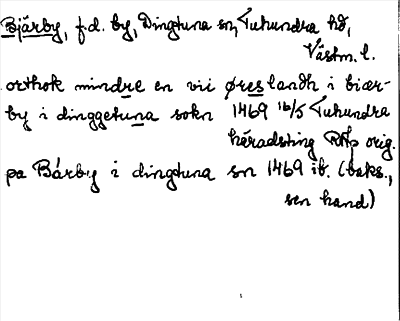 Bjärby, f.d. by, Dingtuna sn, Tuhundra hd,
Västm. l.
orthok mindre en vii øreslandh i biær-
by i dinggetuna sokn 1469 16/5 Tuhundra
häradsting RAp orig.
pa Bärby i dingtuna sn 1469 ib. (baks.,
sen hand)